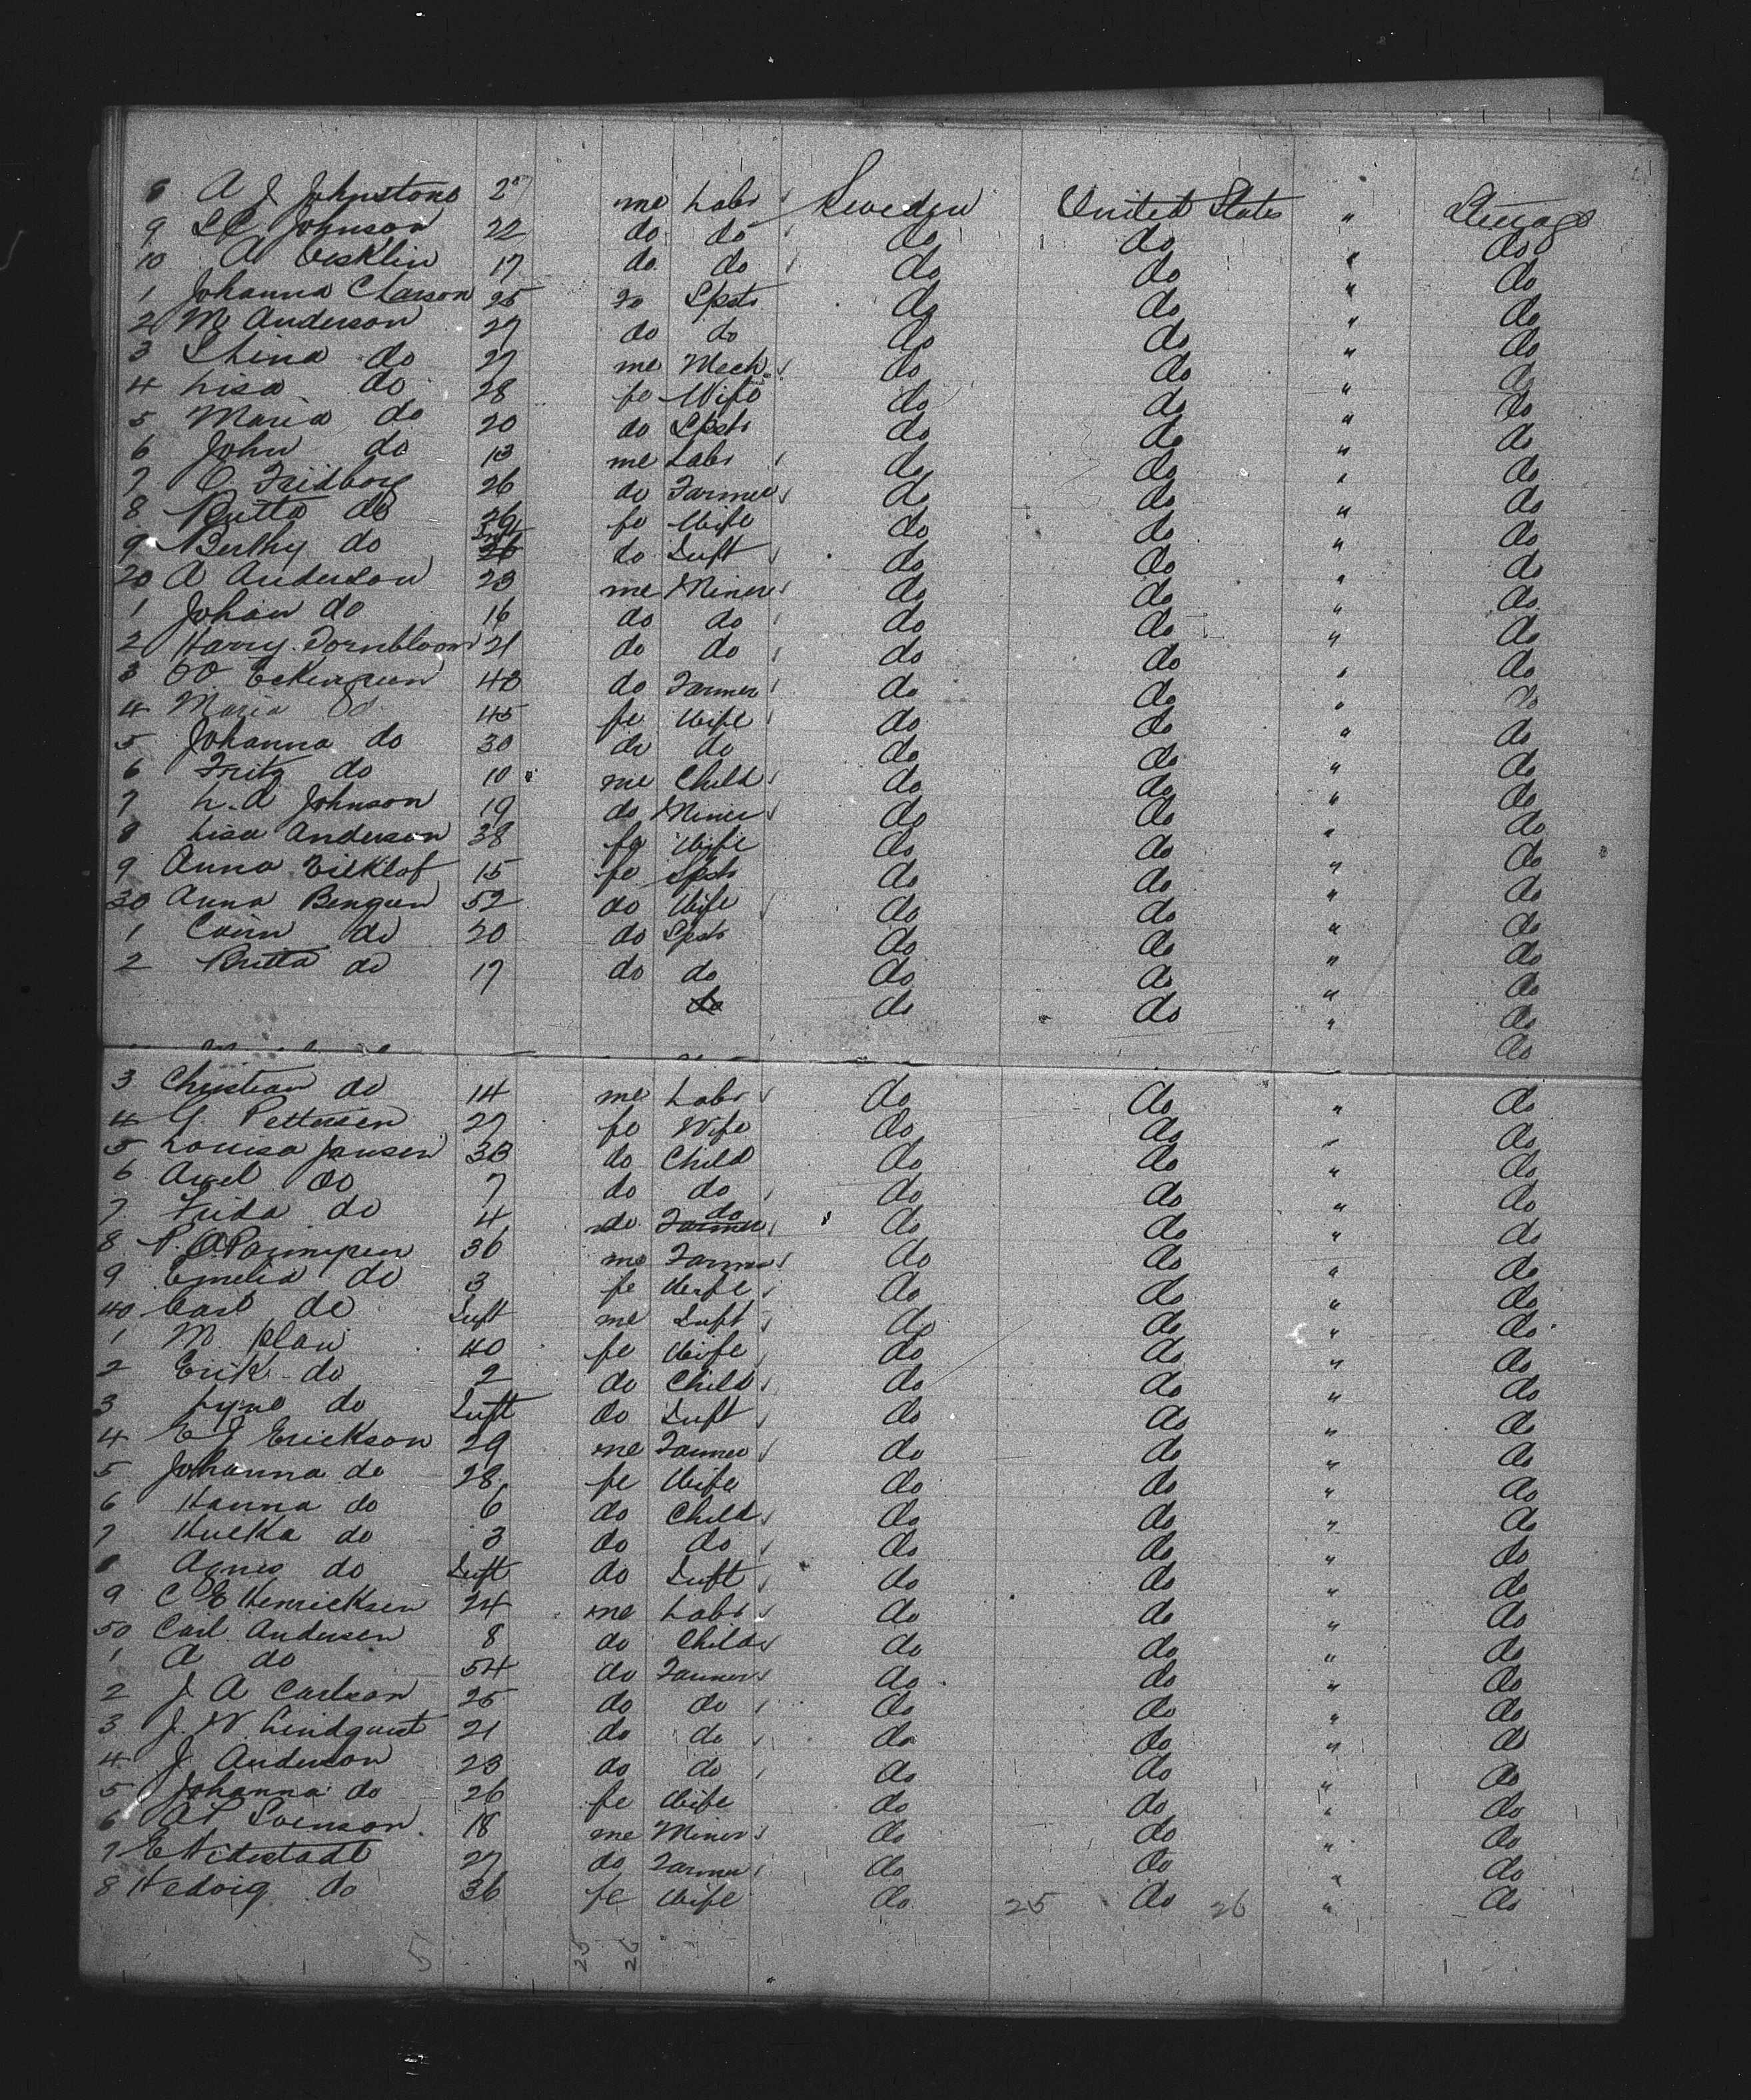 8 A J Johnstone 27 me Labr Sweden United States " Steerage
9 S P Johnson 22 do do do do " do
10 A 17 do do do do " do
1 Johanna Clarson 25 fe Spstr do do " do
2 M Anderson 27 do do do do " do
3 Stina do 27 me Mech do do " do
4 Lisa do 28 fe Wife do do " do
5 Maria do 20 do Spstr do do " do
6 John do 13 me Labr do do " do
7 C Fridborg 26 do Farmer do do " do
8 Britta do 26 fe Wife do do " do
9 Berthy do Inft do Inft do do " do
20 A Anderson 23 me Miner do do " do
1 Johan do 16 do do do do " do
2 Harry Tornbloom 21 do do do do " do
3 43 do Farmer do do " do
4 Maria do 45 fe Wife do do " do
5 Johanna do 30 do do do do " do
6 Fritz do 10 me Child do do " do
7 L. A Johnson 19 do Miner do do " do
8 Lisa Anderson 38 fe Wife do do " do
9 Anna 15 fe Spstr do do " do
30 Anna Bengsen 52 do Wife do do " do
1 do 20 do Spstr do do " do
2 Britta do 17 do do do do " do
do do do " do
do
3 Christian do 14 me Labr do do " do
4 G. Pettersen 27 fe Wife do do " do
5 Louisa Jansen 33 do Child do do " do
6 Axel do 7 do do do do " do
7 Frida do 4 do do do do " do
8 36 me Farmer do do " do
9 Emelia do 3 fe Wife do do " do
40 Carl do Inft me Inft do do " do
1 M Klan 40 fe Wife do do " do
2 Erik do 2 do Child do do " do
3 do Inft do Inft do do " do
4 E J Erickson 29 me Farmer do do " do
5 Johanna do 28 fe Wife do do " do
6 Hanna do 6 do Child do do " do
7 do 3 do do do do " do
8 Agnes do Inft do Inft do do " do
9 C E Henricksen 24 me Labr do do " do
50 Carl Andersen 8 do Child do do " do
1 A do 54 do Farmer do do " do
2 J A Carlson 25 do do do do " do
3 J. W. Lindquist 21 do do do do " do
4 J Anderson 23 do do do do " do
5 Johanna do 26 fe Wife do do " do
6 A P Svenson 18 me Miner do do " do
7 E Nidestadt 27 do Farmer do do " do
8 Hedvig do 36 fe Wife do 25 do 26 " do
5 25 26